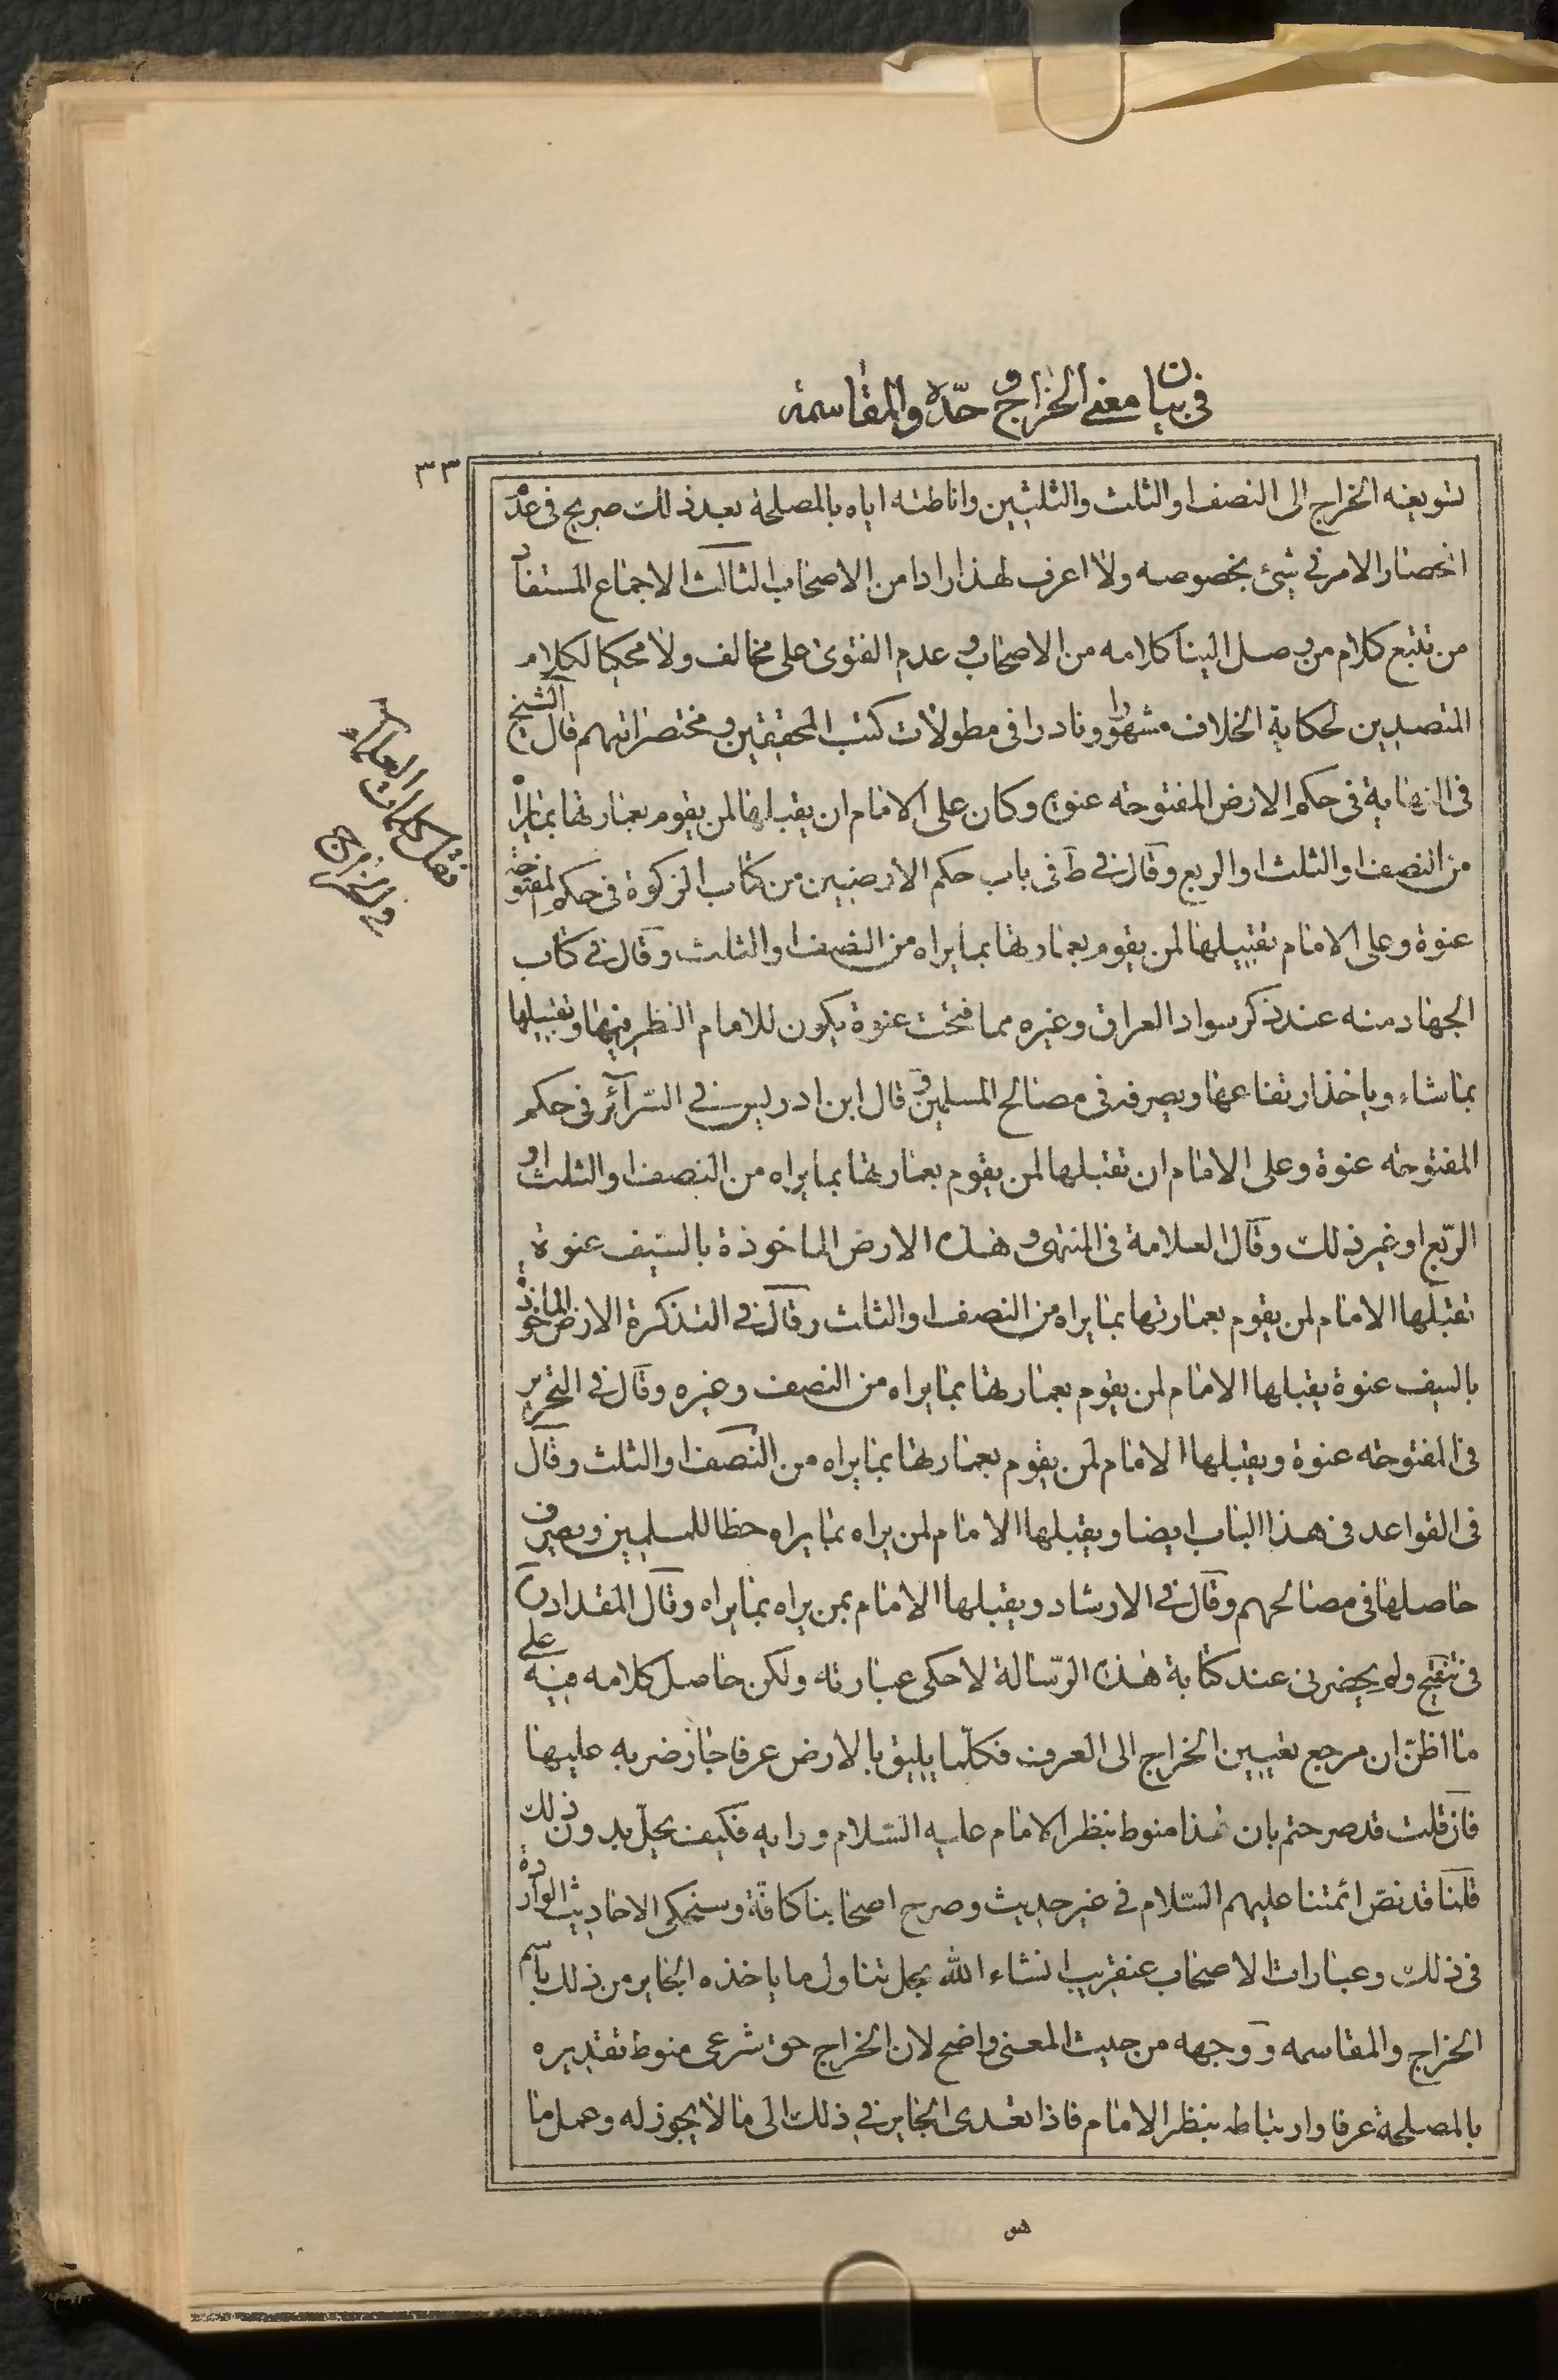 في بيان معنى الخراج وحدّه والمقاسمه
٣٣
تسويغه الخراج الى النصف او الثلث والثلثين واناطته اياه بالمصلحة بعد ذلك صريح فى عدم
انحصار الامر في شئ بخصوصه ولا اعرف لهذا رادا من الاصحاب الثالث الاجماع المستفاد
من تتبع كلام من وصل الينا كلامه من الاصحاب وعدم الفتوى على مخالف ولا محكيا لكلام
المتصدين لحكاية الخلاف مشهورا ونادرا فى مطولات كتب المحققين ومختصراتهم قال الشيخ
فى النهاية فى حكم الارض المفتوحه عنوة وكان على الامام ان يقبلها لمن يقوم بعمارتها بما يراه
من النصف او الثلث او الربع وقال في ط فى باب حكم الارضيين من كتاب الزكوة فى حكم المفتوحة
عنوة وعلى الامام تقبيلها لمن يقوم بعمارتها بما يراه من النصف او الثلث وقال في كتاب
الجهاد منه عند ذكر سواد العراق وغيره مما فتحت عنوة يكون للامام النظر فيها وتقبيلها
بما شاء وياخذ ارتفاعها ويصرفه فى مصالح المسلمين وقال ابن ادريس في السّرآئر فى حكم
المفتوحه عنوة وعلى الامام ان تقبلها لمن يقوم بعمارتها بما يراه من النصف او الثلث او
الرّبع او غير ذلك وقال العلامة فى المنتهى وهذه الارض الماخوذة بالسّيف عنوة
تقبلها الامام لمن يقوم بعمارتها بما يراه من النصف او الثلث وقال في التذكرة الارض الماخوذة
بالسيف عنوة يقبلها الامام لمن يقوم بعمارتها بما يراه من النصف وغيره وقال في التحرير
فى المفتوحه عنوة ويقبلها الامام لمن يقوم بعمارتها بما يراه من النصف او الثلث وقال
فى القواعد فى هذا الباب ايضا ويقبلها الامام لمن يراه بما يراه حظا للمسلمين ويصرف
حاصلها فى مصالحهم وقال في الارشاد ويقبلها الامام بمن يراه بما يراه وقال المقداد
فى تنقيح ولم يحضرنى عند كتابة هذه الرّسالة لاحكى عبارته ولكن حاصل كلامه فيه على
ما اظنّ ان مرجع تعيين الخراج الى العرف فكلّما يليق بالارض عرفا جاز ضربه عليها
فان قلت قد صرحتم بان هذا منوط بنظر الامام عليه السّلام ورايه فكيف يحلّ بدون ذلك
قلنا قد نصّ ائمتنا عليهم السّلام في غير حديث وصرح اصحابنا كافّة وسنحكى الاحاديث الواردة
فى ذلك وعبارات الاصحاب عنقريب انشاء الله بحل تناول ما ياخذه الجاير من ذلك باسم
الخراج والمقاسمه ووجهه من حيث المعنى واضح لان الخراج حق شرعى منوط تقديره
بالمصلحة عرفا وارتباطه بنظر الامام فاذا تعدى الجاير في ذلك الى ما لا يجوز له وعمل ما
نقل كلمات العلماء
فى الخراج